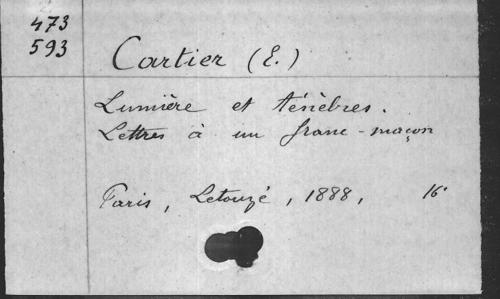 473
593
Cartier (E.)
Lumière et ténèbres.
Lettres à un franc-maçon
Paris, Letouzé, 1888, 16°